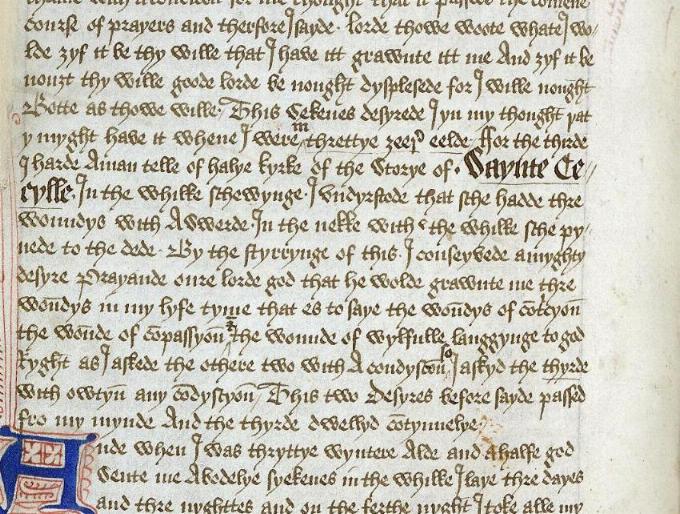 thame with A condicion for me thought that it passed the comene
course of prayers and therfore I sayde. lorde thowe woote whate I wo
lde ȝyf it be thy wille that I have itt grawnte itt me And ȝyf it be
nouȝt thy wille goode lorde be nought dysplesede for I wille nought
Botte as thowe wille. This sekenes desyrede I yn my thought þat
y myght have it whene I were threttye ȝeerꝭ eelde. ffor the thirde
I harde A man telle of halye kyrke of the Storye of. Saynte Ce//
cylle. In the whilke schewynge. I vndyrstode that sche hadde thre
woundys with A swerde. In the nekke with the whilke sche py/
nede to the dede. By the styrrynge of this. I conseyvede a myghty
desyre Prayande oure lorde god that he wolde grawnte me thre
wōndys in my lyfe tyme that es to saye the wōndys of cōtrycyoñ
the wōnde of cōpassyoñ & the wounde of wylfulle langgynge to god
Ryght as I askede the othere two with A condyscoñ so I askyd the thyrde
with owtyñ any cōdystyoñ/ This two desyres before sayde passed
fro my mynde And the thyrde dwellyd cōtynnelye
Ande when I was thryttye wyntere Alde and a halfe god
sente me A bodelye syekenes in the whilke I laye thre dayes
and thre nyghttes and on the ferthe nyght I toke alle my